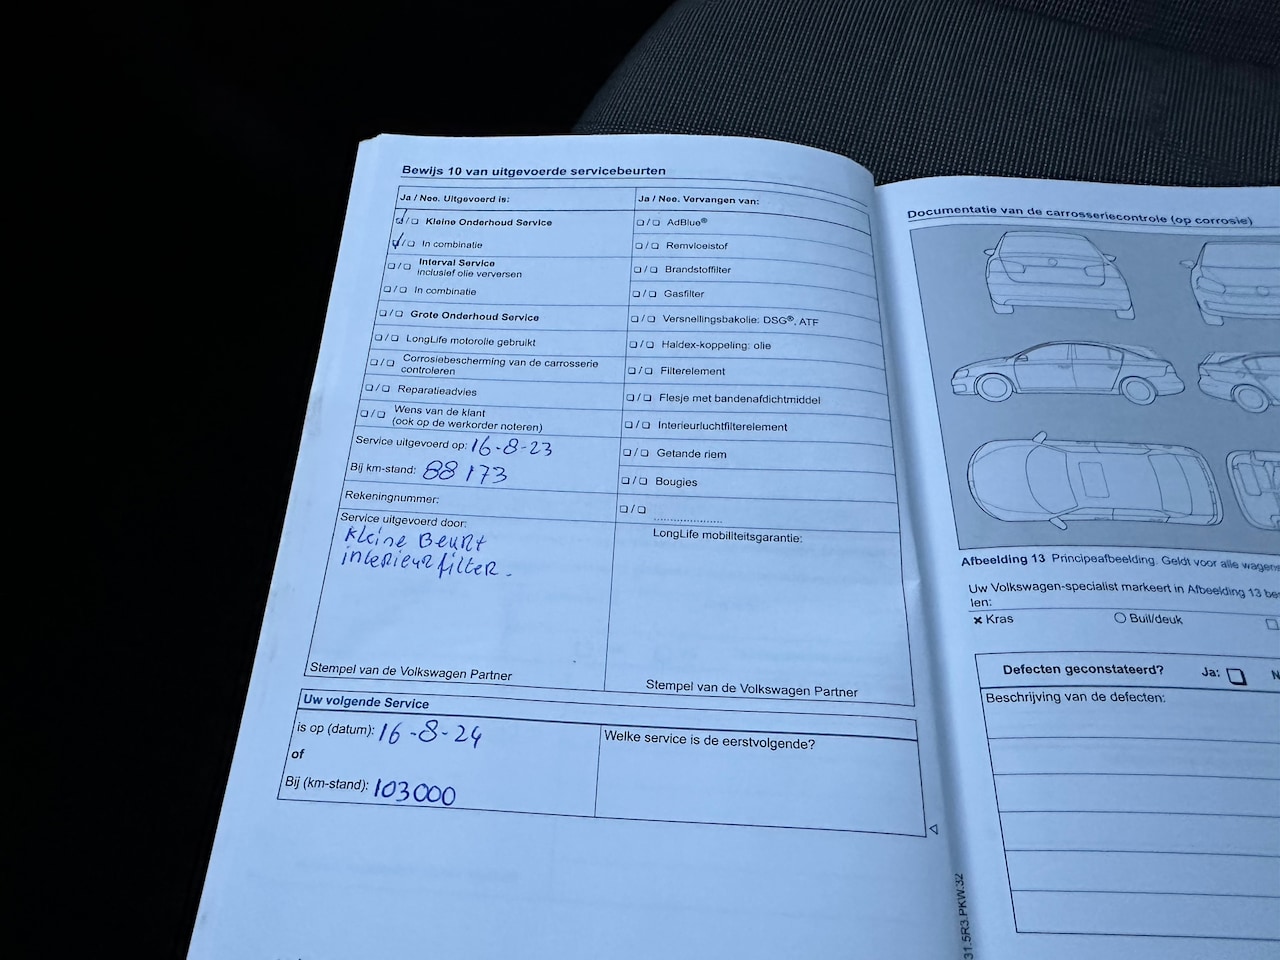 Bewijs 10 van uitgevoerde servicebeurten
Ja / Nee. Uitgevoerd is:
Kleine Onderhoud Service
In combinatie
Interval Service
inclusief olie verversen
In combinatie
Grote Onderhoud Service
LongLife motorolie gebruikt
Corrosiebescherming van de carrosserie
controleren
Reparatieadvies
Wens van de klant
(ook op de werkorder noteren)
Service uitgevoerd op: 16-8-23
Bij km-stand: 88173
Rekeningnummer:
Service uitgevoerd door:
Kleine Beurt
interieurfilter.
Stempel van de Volkswagen Partner
Ja / Nee. Vervangen van:
AdBlue®
Remvloeistof
Brandstoffilter
Gasfilter
Versnellingsbakolie: DSG®, ATF
Haldex-koppeling: olie
Filterelement
Flesje met bandenafdichtmiddel
Interieurluchtfilterelement
Getande riem
Bougies
....................
LongLife mobiliteitsgarantie:
Stempel van de Volkswagen Partner
Uw volgende Service
is op (datum): 16-8-24
of
Bij (km-stand): 103000
Welke service is de eerstvolgende?
Documentatie van de carrosseriecontrole (op corrosie)
Afbeelding 13 Principeafbeelding. Geldt voor alle wagens
Uw Volkswagen-specialist markeert in Afbeelding 13 be
len:
Kras
Buil/deuk
Defecten geconstateerd? Ja: N
Beschrijving van de defecten:
31.5R3.PKW.32